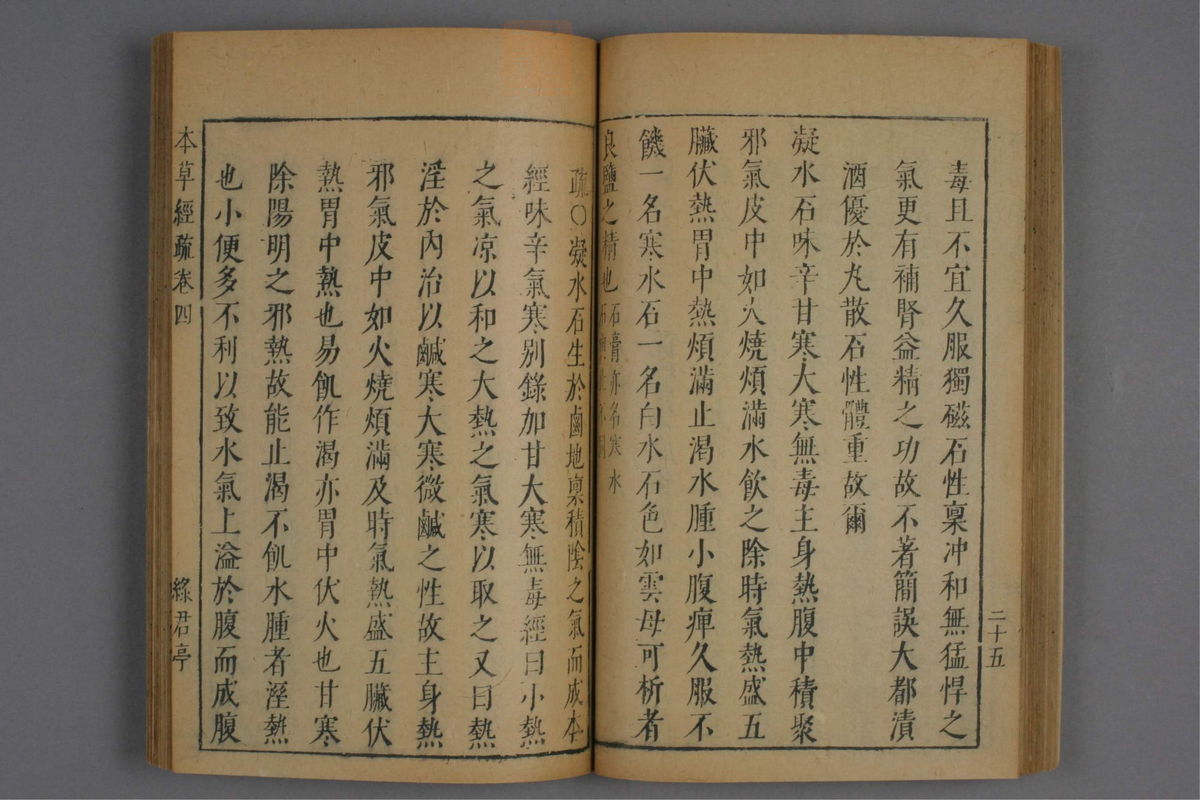 毒且不宜久服獨磁石性稟冲和無猛悍之
氣更有補腎益精之功故不著簡誤大都漬
酒優於丸散石性體重故爾
凝水石味辛甘寒大寒無毒主身熱腹中積聚
邪氣皮中如火燒煩滿水飲之除時氣熱盛五
臟伏熱胃中熱煩滿止渴水腫小腹痺久服不
饑一名寒水石一名白水石色如雲母可析者
良鹽之精也石膏亦名寒水
二十五
疏○凝水石生於鹵地稟積陰之氣而成本
經味辛氣寒别錄加甘大寒無毒經曰小熱
之氣凉以和之大熱之氣寒以取之又曰熱
淫於內治以鹹寒大寒微鹹之性故主身熱
邪氣皮中如火燒煩滿及時氣熱盛五臟伏
熱胃中熱也易飢作渴亦胃中伏火也甘寒
除陽明之邪熱故能止渴不飢水腫者溼熱
也小便多不利以致水氣上溢於腹而成腹
本草經疏卷四
綠君亭